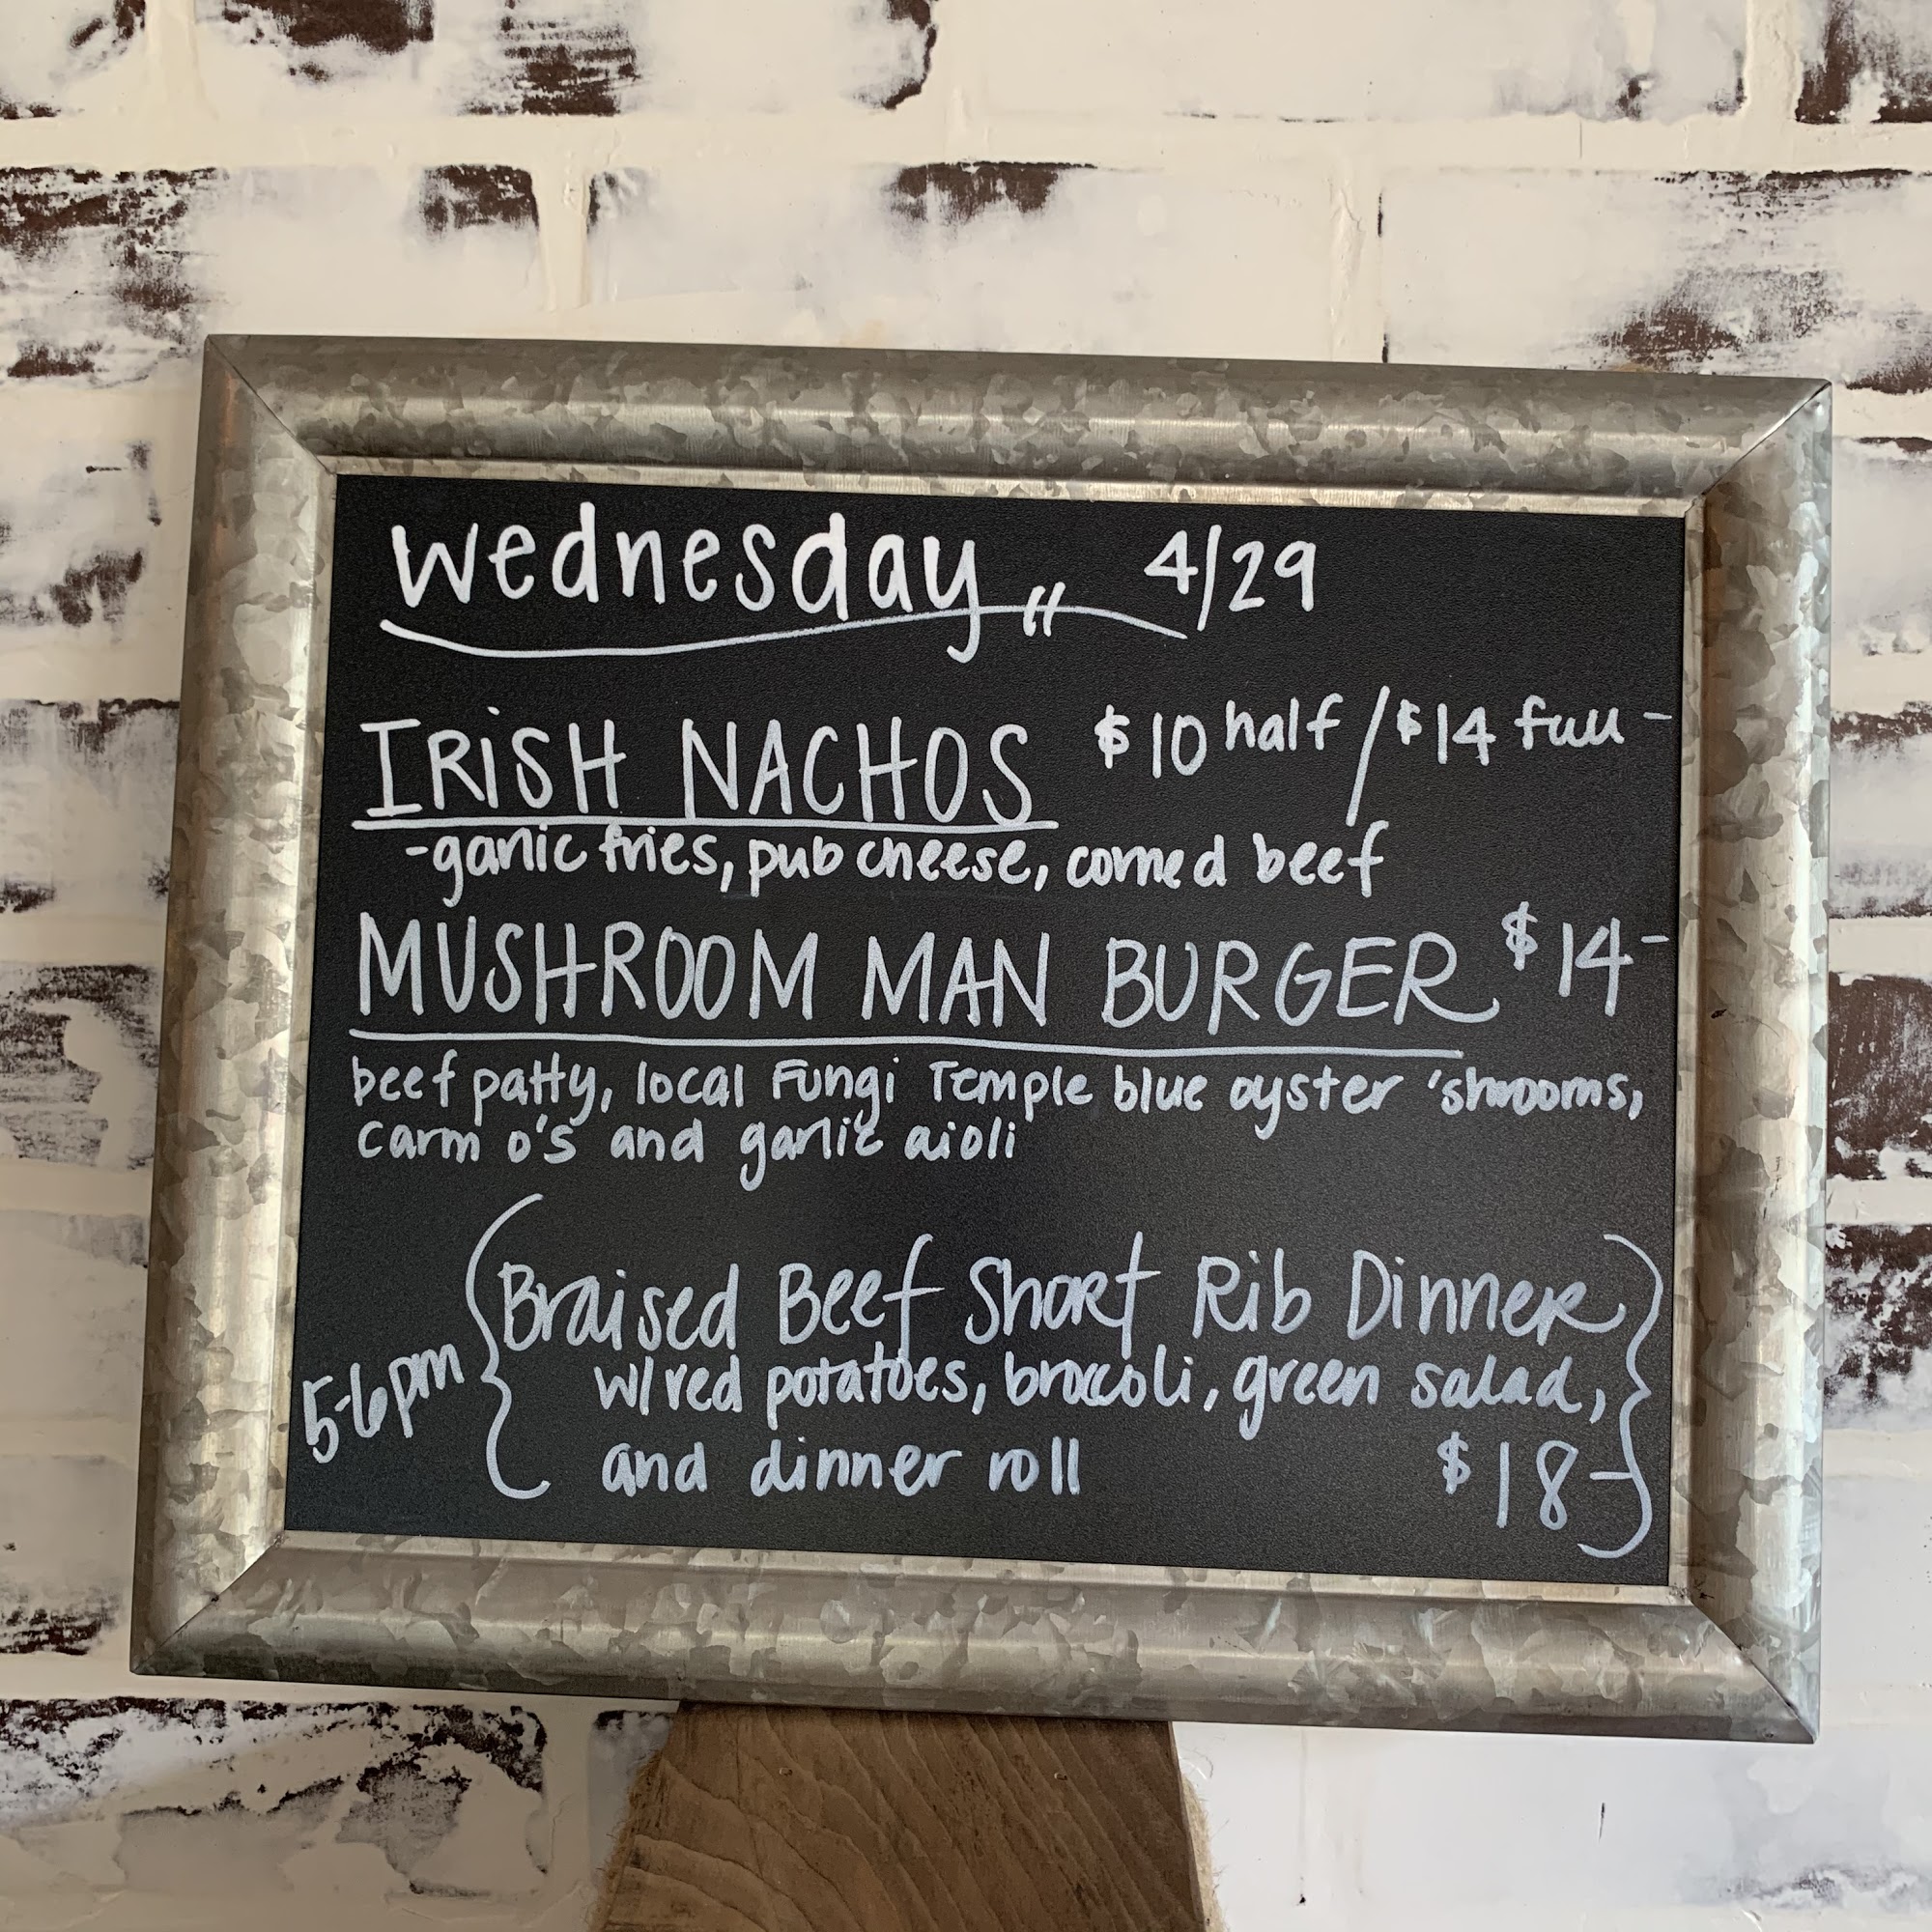 Wednesday,, 4/29
IRISH NACHOS $10 half / $14 full -
- garlic fries, pub cheese, corned beef
MUSHROOM MAN BURGER $14 -
beef patty, local Fungi Temple blue oyster 'shrooms,
carm o's and garlic aioli
Braised Beef Short Rib Dinner
5-6pm w/ red potatoes, broccoli, green salad,
and dinner roll $18 -